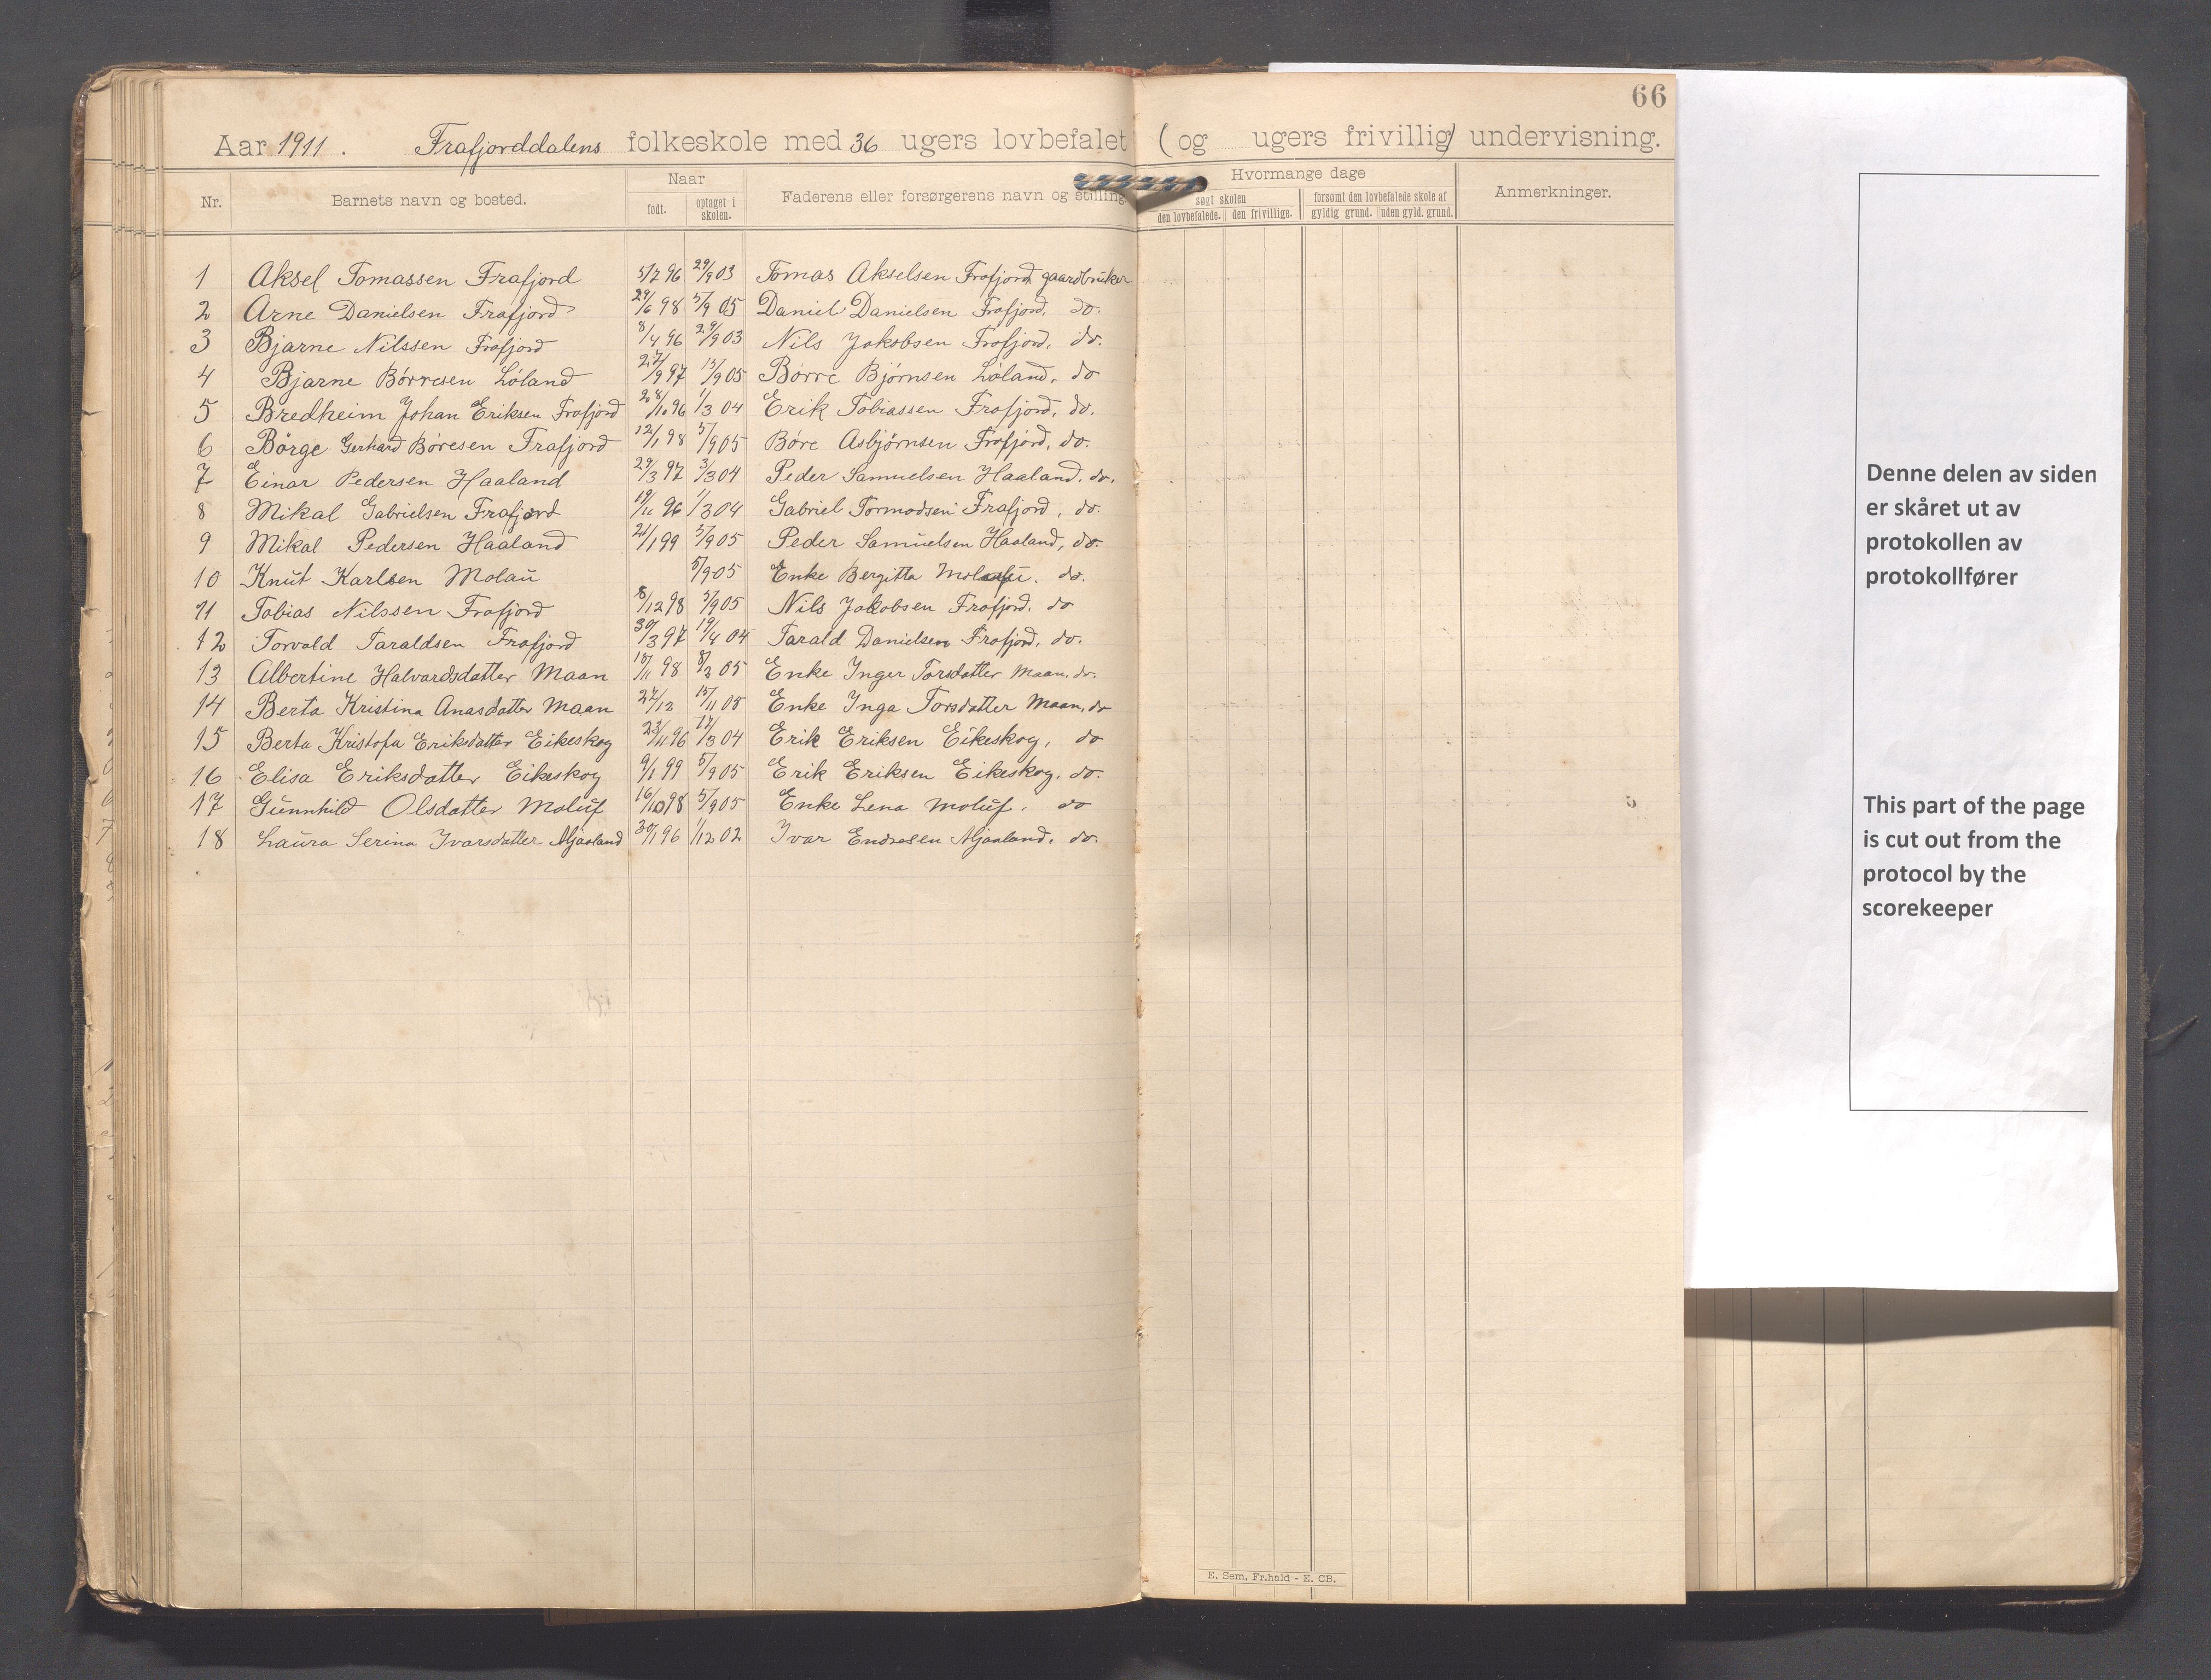 66
Aar 1911. Frafjorddalens folkeskole med 36 ugers lovbefalet (og ugers frivillig) undervisning.
Nr. Barnets navn og bosted. Naar født. optaget i skolen. Faderens eller forsørgerens navn og stilling Hvormange dage søgt skolen den lovbefalede. den frivillige. forsømt den lovbefalede skole af gyldig grund. uden gyld. grund. Anmerkninger.
1 Aksel Tomassen Frafjord 5/7 96 29/9 03 Tomas Akselsen Frafjord gaardbruker
2 Arne Danielsen Frafjord 29/6 98 5/9 05 Daniel Danielsen Frafjord, do.
3 Bjarne Nilssen Frafjord 8/4 96 29/9 03 Nils Jakobsen Frafjord, do.
4 Bjarne Börresen Löland 27/9 97 15/9 05 Börre Björnsen Löland, do
5 Bredheim Johan Eriksen Frafjord 28/10 96 1/3 04 Erik Tobiassen Frafjord, do.
6 Börge Gerhard Böresen Frafjord 12/1 98 5/9 05 Böre Asbjörnsen Frafjord, do.
7 Einar Pedersen Haaland 29/3 97 3/3 04 Peder Samuelsen Haaland. do.
8 Mikal Gabrielsen Frafjord 19/11 96 1/3 04 Gabriel Tormodsen Frafjord, do.
9 Mikal Pedersen Haaland 21/1 99 5/9 05 Peder Samuelsen Haaland, do.
10 Knut Karlsen Molau 5/9 05 Enke Bergitta do.
11 Tobias Nilssen Frafjord 8/12 98 5/9 05 Nils Jakobsen Frafjord. do
12 Torvald Taraldsen Frafjord 30/3 97 19/4 04 Tarald Danielsen Frafjord, do.
13 Albertine Halvardsdatter Maan 18/11 98 8/2 05 Enke Inger Torsdatter Maan. do.
14 Berta Kristina Anasdatter Maan 27/12 15/11 05 Enke Inga Torsdatter Maan, do
15 Berta Kristofa Eriksdatter Eikeskog 23/11 96 17/3 04 Erik Eriksen Eikeskog, do
16 Elisa Eriksdatter Eikeskog 9/1 99 5/9 05 Erik Eriksen Eikeskog. do.
17 Gunnhild Olsdatter Moluf 16/10 98 5/9 05 Enke Lena Moluf, do
18 Laura Serina Ivarsdatter Mjaaland 30/1 96 1/12 02 Ivar Endresen Mjaaland. do.
E. Sem, Fr.hald - E. CB.
Denne delen av siden
er skåret ut av
protokollen av
protokollfører
This part of the page
is cut out from the
protocol by the
scorekeeper